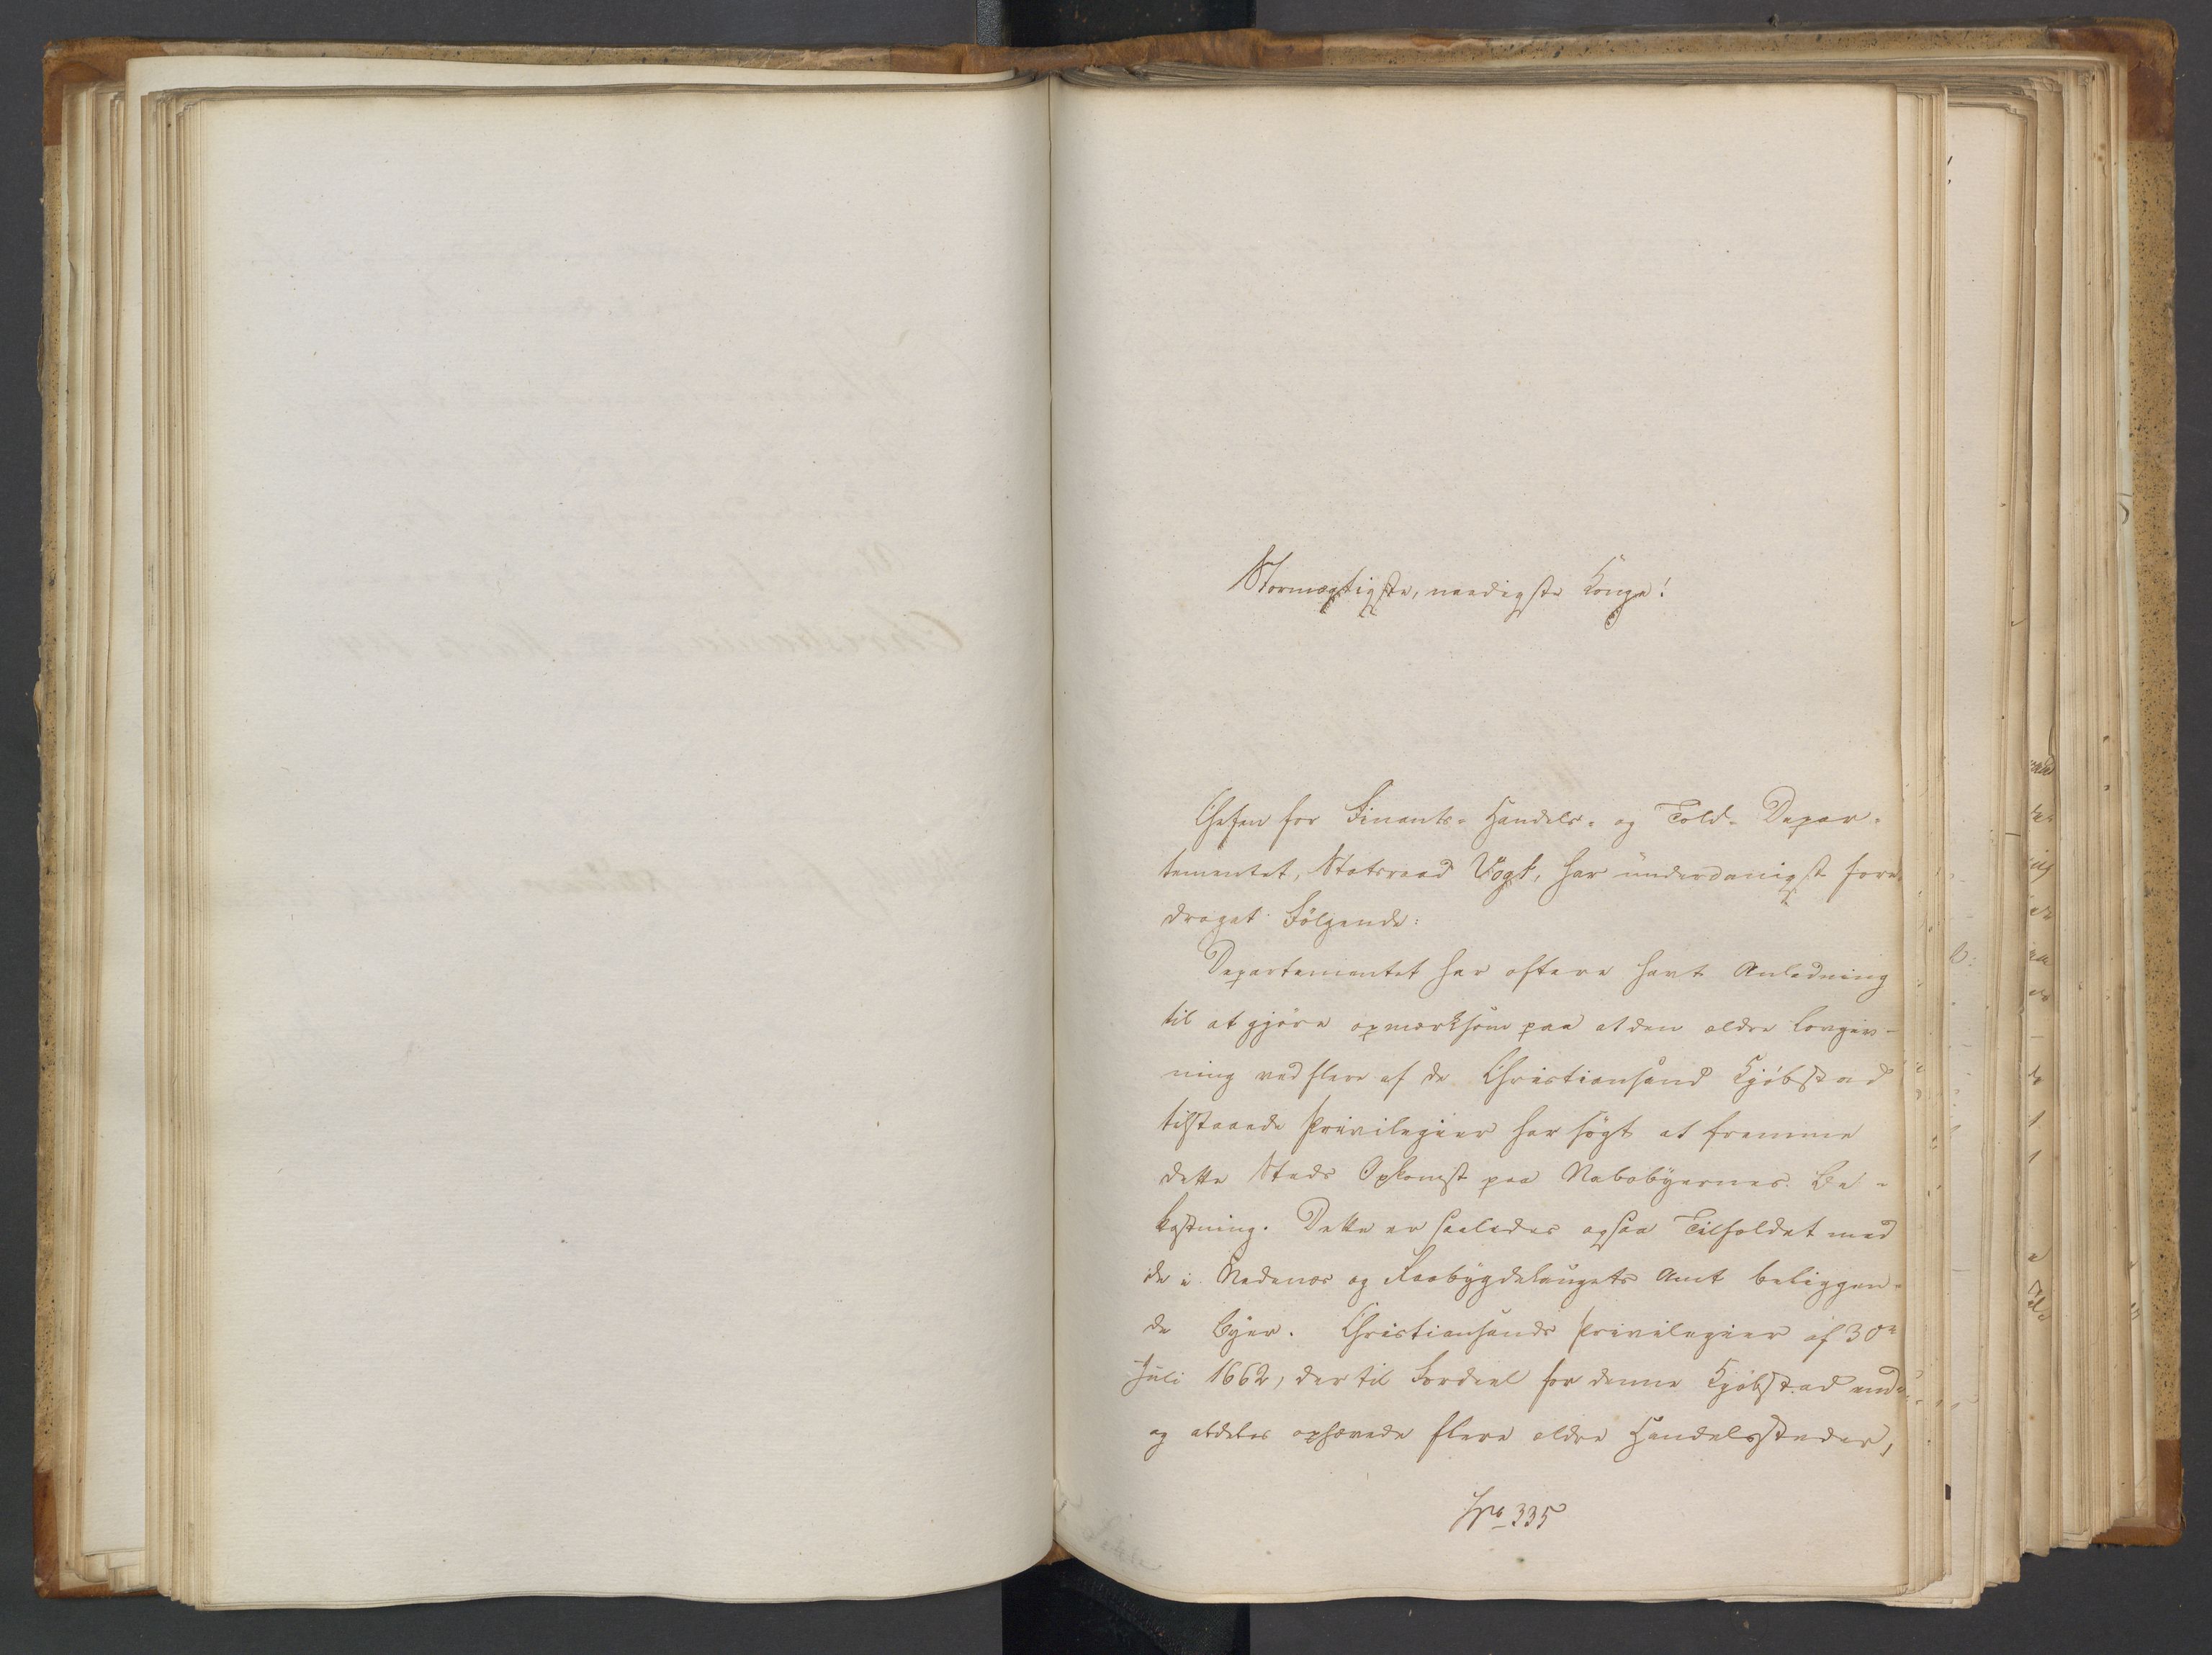 Stormægtigste, naadigste Konge!
Chefen for Finants- Handels- og Told- Depar-
tementet, Statsraad Vogt, har underdanigst fore-
draget Følgende:
Departementet har oftere havt Anledning
til at gjøre opmærksom paa at den ældre Lovgiv-
ning ved flere af de Christiansand Kjøbstad
tilstaaede Privilegier har søgt at fremme
dette Steds Opkomst paa Nabobyernes Be-
kostning. Dette er saaledes ogsaa Tilfældet med
de i Nedenæs og Raabygdelaugets Amt beliggen-
de Byer. Christiansands Privilegier af 30te
Juli 1662, der til Fordeel for denne Kjøbstad
og aldeles ophævede flere ældre Handelssteder,
No 335